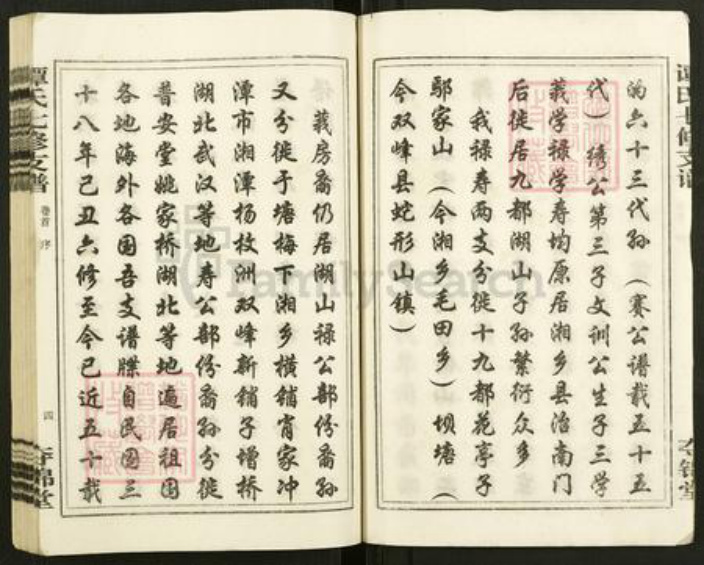 的六十三代孙（赛公谱载五十五
代）绣公第三子文训公生子三学
義学禄学寿均原居湘乡县治南门
后徙居九都湖山子孙繁衍众多
我禄寿两支分徙十九都花亭子
鄢家山（今湘乡毛田乡）坝塘（
今双峰县蛇形山镇）
義房裔仍居湖山禄公部份裔孙
又分徙于塘梅下湘乡横铺肖家冲
潭市湘潭杨枚洲双峰新铺子增桥
湖北武汉等地寿公部份裔孙分徙
普安堂姚家桥湖北等地遍居祖国
各地海外各国吾支谱牒自民国三
十八年己丑六修至今已近五十载
谭氏七修支谱
卷首 序
四
FamilySearch